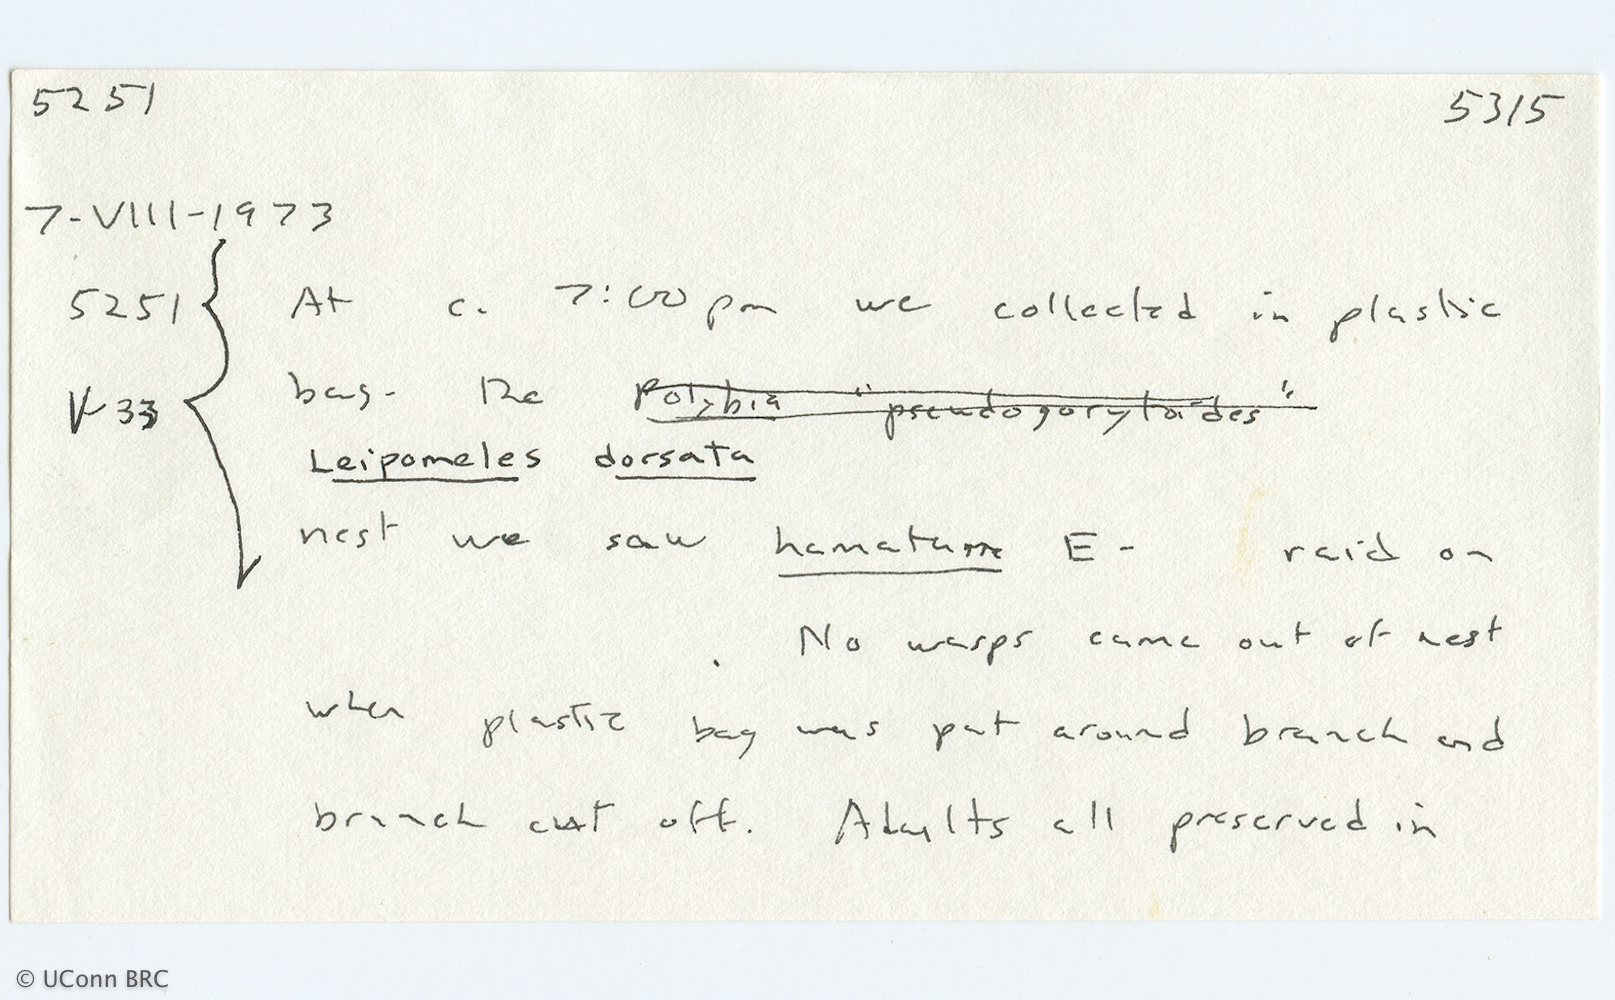 5251 5315
7-VIII-1973
5251 At c. 7:00 pm we collected in plastic
V-33 bag. The Polybia "pseudogorytoides"
Leipomeles dorsata
nest we saw hamatum E- raid on
. No wasps came out of nest
when plastic bag was put around branch and
branch cut off. Adults all preserved in
© UConn BRC